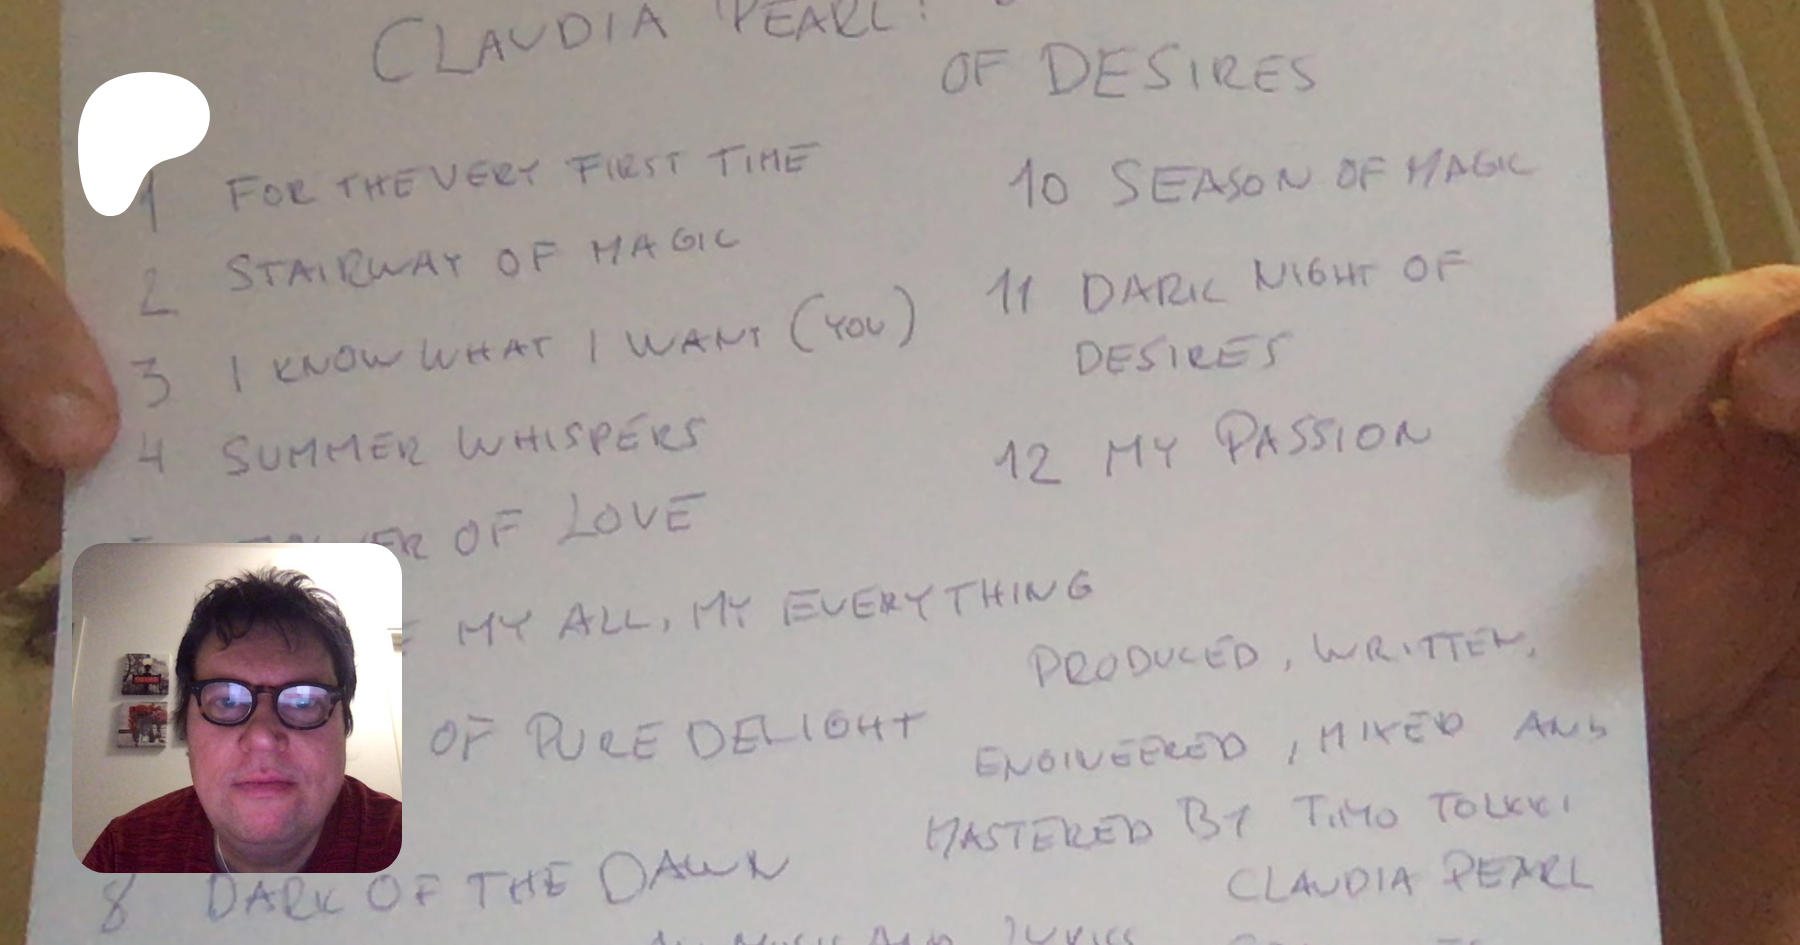 CLAUDIA PEARL:
OF DESIRES
1 FOR THE VERY FIRST TIME
2 STAIRWAY OF MAGIC
3 I KNOW WHAT I WANT (YOU)
4 SUMMER WHISPERS
OF LOVE
MY ALL, MY EVERYTHING
OF PURE DELIGHT
8 DARK OF THE DAWN
10 SEASON OF MAGIC
11 DARK NIGHT OF
DESIRES
12 MY PASSION
PRODUCED, WRITTEN,
ENGINEERED, MIXED AND
MASTERED BY TIMO TOLKKI
CLAUDIA PEARL